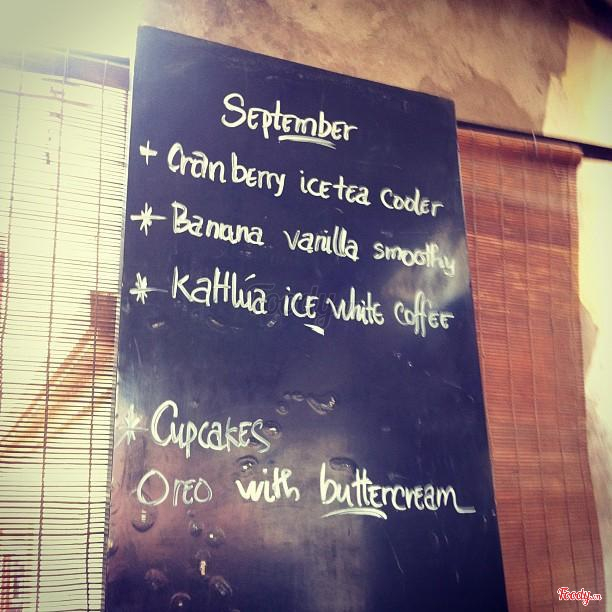 September
+ Cranberry icetea cooler
* Banana vanilla smoothy
* Kahlúa ICE white coffee
* Cupcakes
Oreo with buttercream
Foody.vn